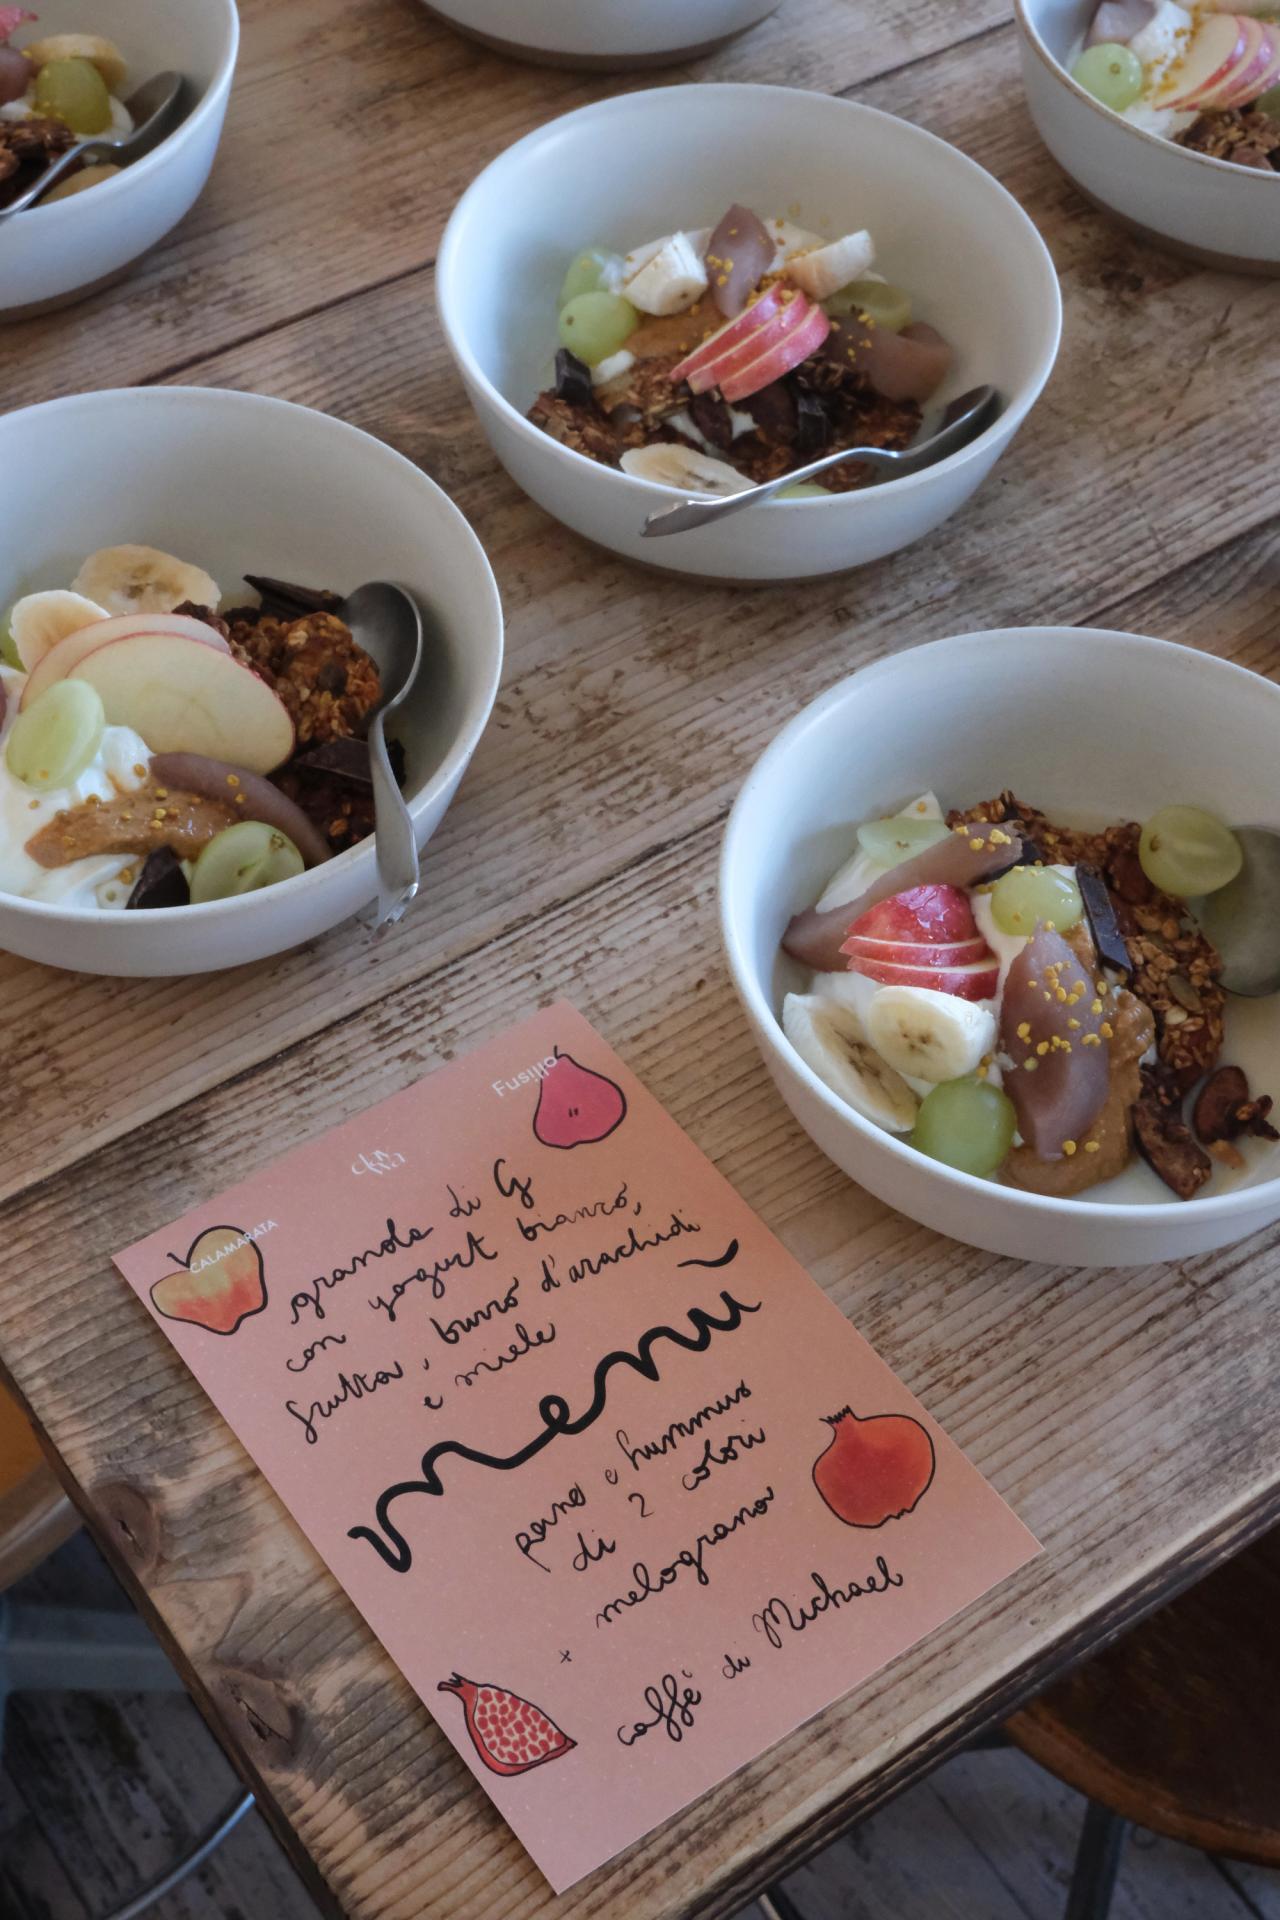 Fusillo
CALAMARATA
granola di G
con yogurt bianco,
frutta, burro d'arachidi
e miele
menù
pane e hummus
di 2 colori
+ melograno
caffé di Michael